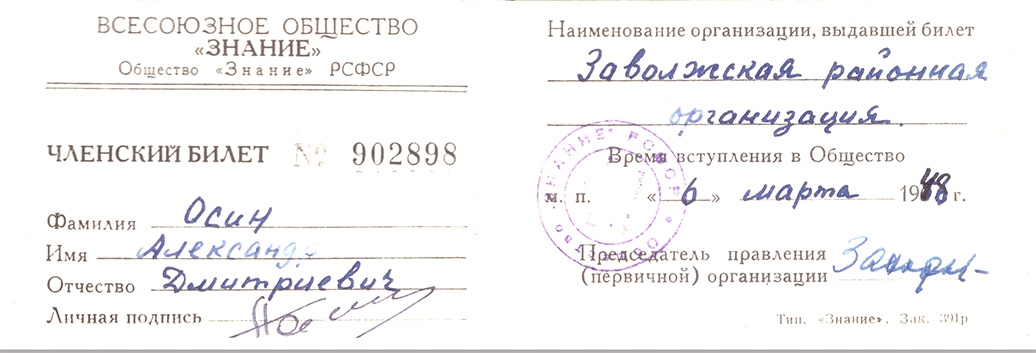 ВСЕСОЮЗНОЕ ОБЩЕСТВО
«ЗНАНИЕ»
Общество «Знание» РСФСР
ЧЛЕНСКИЙ БИЛЕТ № 902898
Фамилия Осин
Имя Александр
Отчество Дмитриевич
Личная подпись
Наименование организации, выдавшей билет
Заволжская районная
организация.
Время вступления в Общество
м. п. «6» марта 1948 г.
Председатель правления
(первичной) организации
Тип. «Знание». Зак. 391р